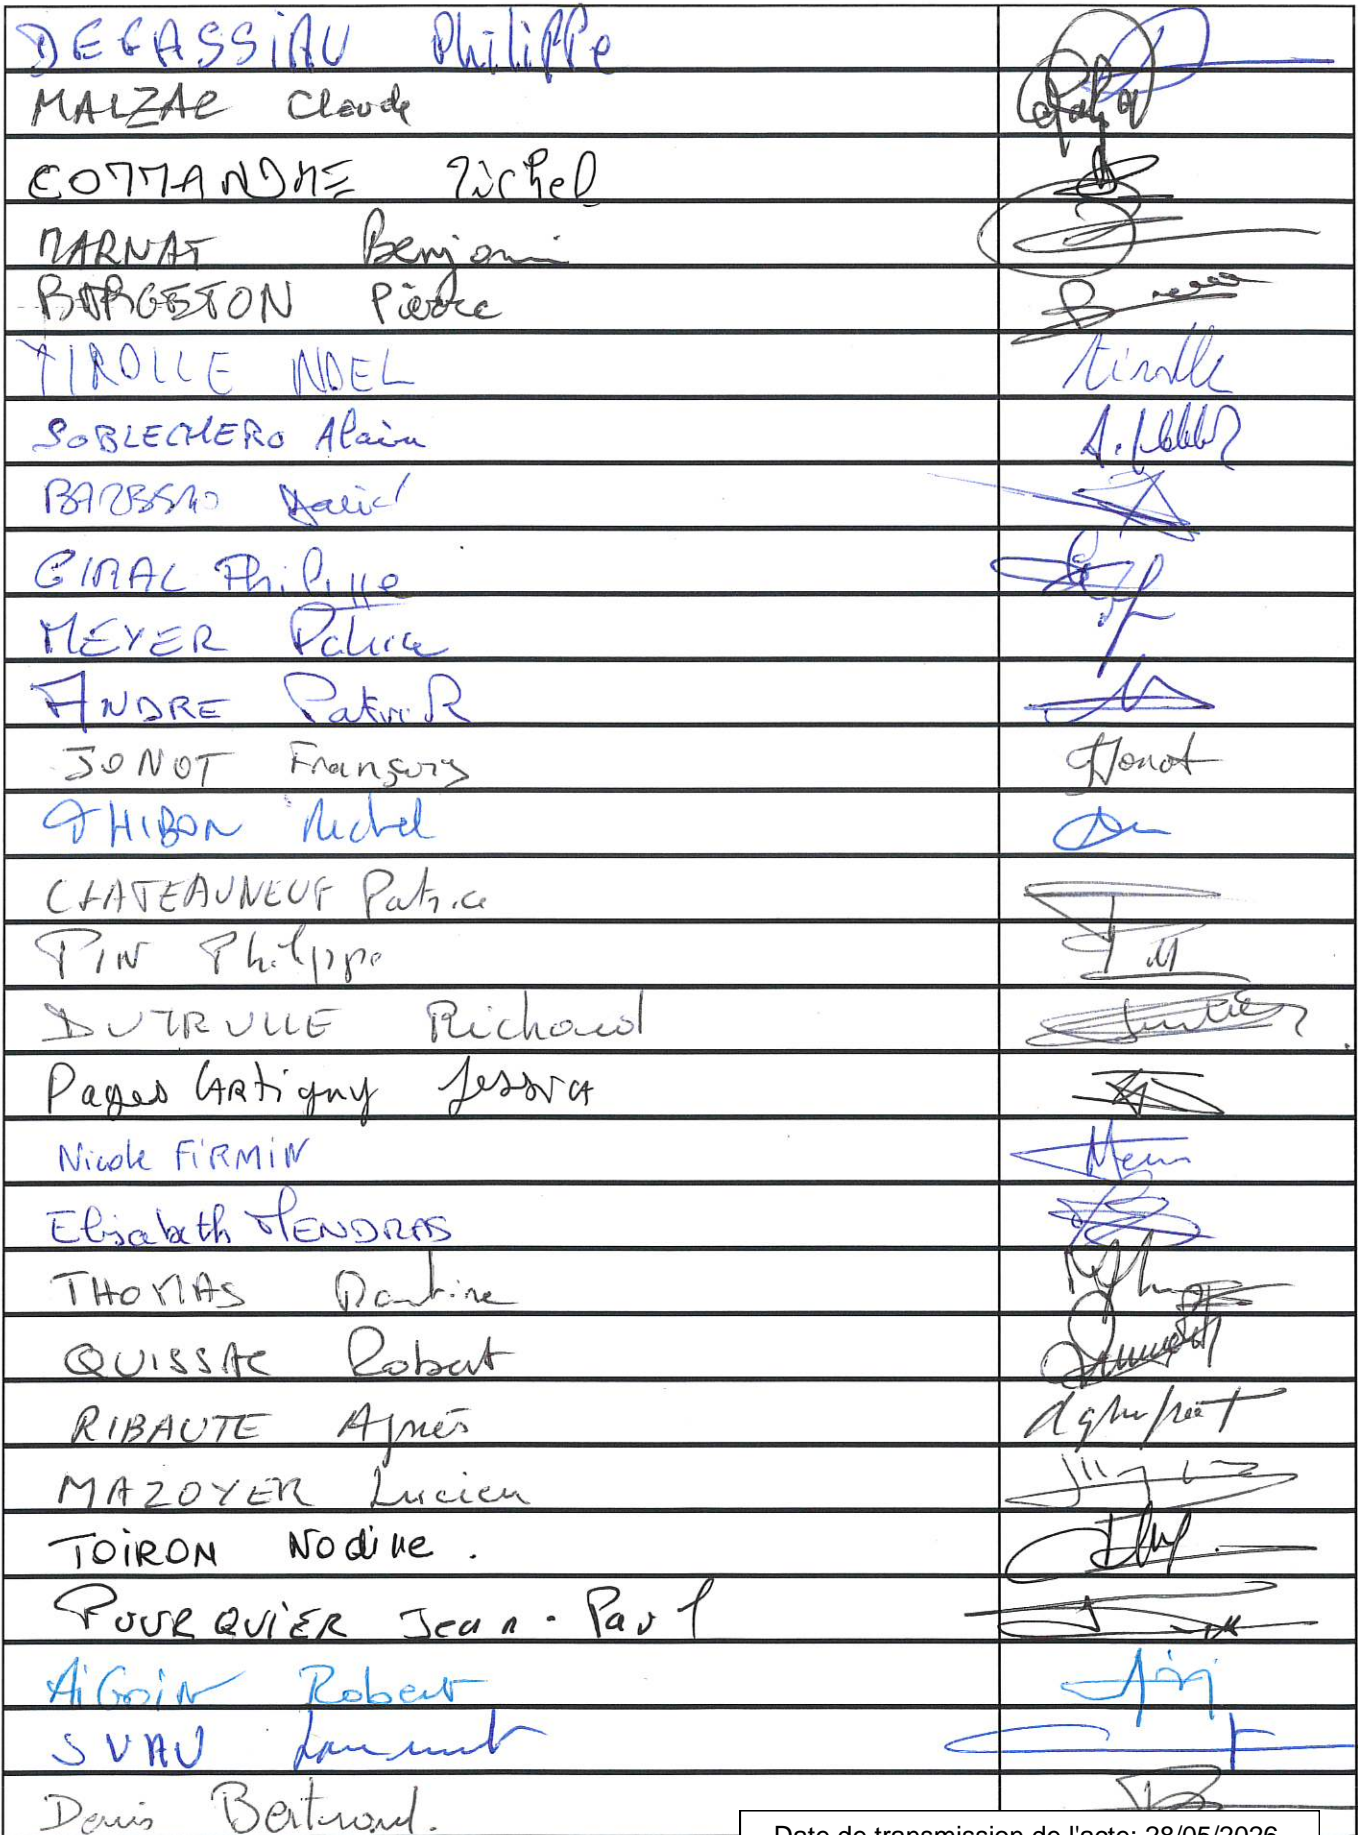 DEGASSIAU Philippe
MALZAC Claude
COMMANDRE Michel
MARNAT Benjamin
BARGETON Pierre
TIROLLE NOEL
tirolle
SOBLECHERO Alain
BARBERIO David
GIRAL Philippe
MEYER Patrice
ANDRE Patrick
JONOT François
Jonot
THIBON Michel
CHATEAUNEUF Patrice
PIN Philippe
DUTRULLE Richard
Pages Cartigny Jessica
Nicole FIRMIN
Elisabeth MENDRAS
THOMAS Martine
QUISSAC Robert
RIBAUTE Agnès
MAZOYER Lucien
TOIRON Nadine.
POURQUIER Jean-Paul
AiGoin Robert
SUAU Laurent
Denis Bertrand.
Date de transmission de l'acte: 28/05/2026